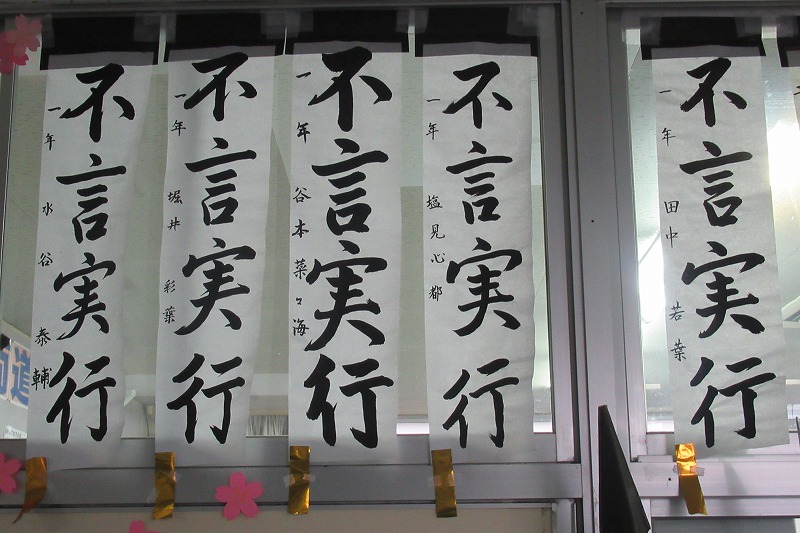 不言実行
一年 水谷 泰輔
不言実行
一年 堀井 彩葉
不言実行
一年 谷本 菜々海
不言実行
一年 塩見心都
不言実行
一年 田中 若葉
進